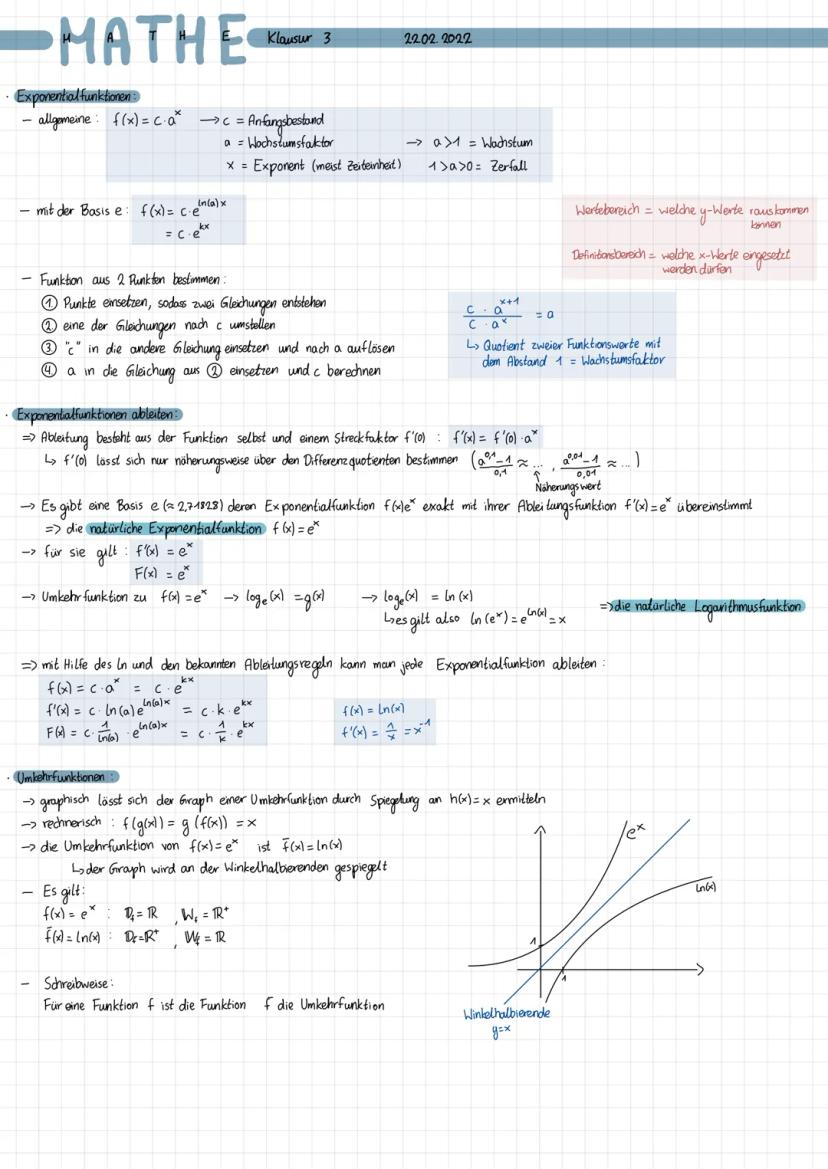 MATHE
M A T H E Klausur 3 22.02.2022
· Exponentialfunktionen:
– allgemeine: f(x) = c·aˣ → c = Anfangsbestand
a = Wachstumsfaktor → a>1 = Wachstum
x = Exponent (meist Zeiteinheit) 1>a>0 = Zerfall
– mit der Basis e: f(x) = c·e^ln(a)x
= c·e^kx
Wertebereich = welche y-Werte rauskommen
können
Definitionsbereich = welche x-Werte eingesetzt
werden dürfen
– Funktion aus 2 Punkten bestimmen:
① Punkte einsetzen, sodass zwei Gleichungen entstehen
② eine der Gleichungen nach c umstellen
③ "c" in die andere Gleichung einsetzen und nach a auflösen
④ a in die Gleichung aus ② einsetzen und c berechnen
c · a^x+1 / c · a^x = a
↳ Quotient zweier Funktionswerte mit
dem Abstand 1 = Wachstumsfaktor
· Exponentialfunktionen ableiten:
=> Ableitung besteht aus der Funktion selbst und einem Streckfaktor f'(0) : f'(x) = f'(0)·aˣ
↳ f'(0) lässt sich nur näherungsweise über den Differenzquotienten bestimmen (a^0,1 −1 / 0,1 ≈ ... , a^0,01 −1 / 0,01 ≈ ...)
↑
Näherungswert
→ Es gibt eine Basis e (≈ 2,71828) deren Exponentialfunktion f(x)eˣ exakt mit ihrer Ableitungsfunktion f'(x)=eˣ übereinstimmt
=> die natürliche Exponentialfunktion f(x) = eˣ
→ für sie gilt: f'(x) = eˣ
F(x) = eˣ
→ Umkehrfunktion zu f(x) = eˣ → logₑ(x) = g(x) → logₑ(x) = ln(x) => die natürliche Logarithmusfunktion
↳ es gilt also ln(eˣ) = e^ln(x) = x
=> mit Hilfe des ln und den bekannten Ableitungsregeln kann man jede Exponentialfunktion ableiten:
f(x) = c·aˣ = c·e^kx
f'(x) = c·ln(a)e^ln(a)x = c·k·e^kx
F(x) = c·1/ln(a)·e^ln(a)x = c·1/k·e^kx
f(x) = ln(x)
f'(x) = 1/x = x⁻¹
· Umkehrfunktionen:
→ graphisch lässt sich der Graph einer Umkehrfunktion durch Spiegelung an h(x)=x ermitteln
→ rechnerisch: f(g(x)) = g(f(x)) = x
→ die Umkehrfunktion von f(x) = eˣ ist f̄(x) = ln(x)
↳ der Graph wird an der Winkelhalbierenden gespiegelt
– Es gilt:
f(x) = eˣ : D_f = ℝ , W_f = ℝ⁺
f̄(x) = ln(x) : D_f = ℝ⁺ , W_f = ℝ
– Schreibweise:
Für eine Funktion f ist die Funktion f die Umkehrfunktion
eˣ
ln(x)
1
1
Winkelhalbierende
y=x